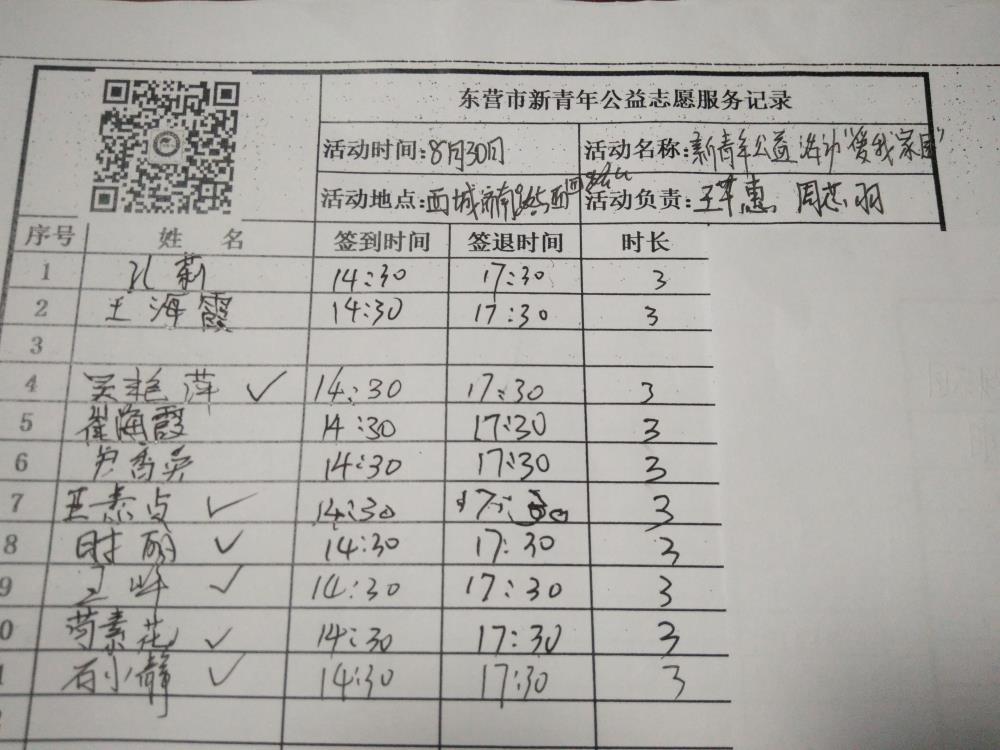 东营市新青年公益志愿服务记录
活动时间:8月30日 活动名称:新青年公益活动"爱我家园"
活动地点:西城 活动负责: 周燕羽
序号 姓名 签到时间 签退时间 时长
1 孔莉 14:30 17:30 3
2 王海霞 14:30 17:30 3
3
4 吴艳萍 ✓ 14:30 17:30 3
5 崔海霞 14:30 17:30 3
6 14:30 17:30 3
7 ✓ 14:30 17:30 3
8 时丽 ✓ 14:30 17:30 3
9 ✓ 14:30 17:30 3
0 苟素花 ✓ 14:30 17:30 3
1 石小静 ✓ 14:30 17:30 3